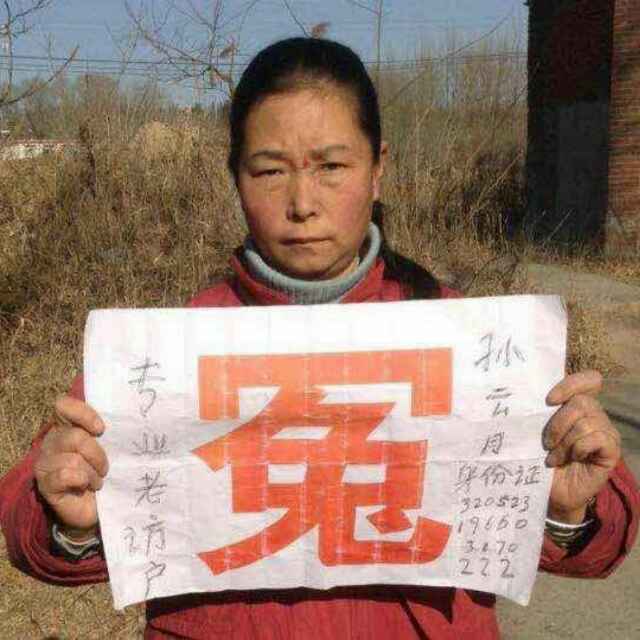 孙云月
身份证
320523
19660
3170
222
冤
专业老访户